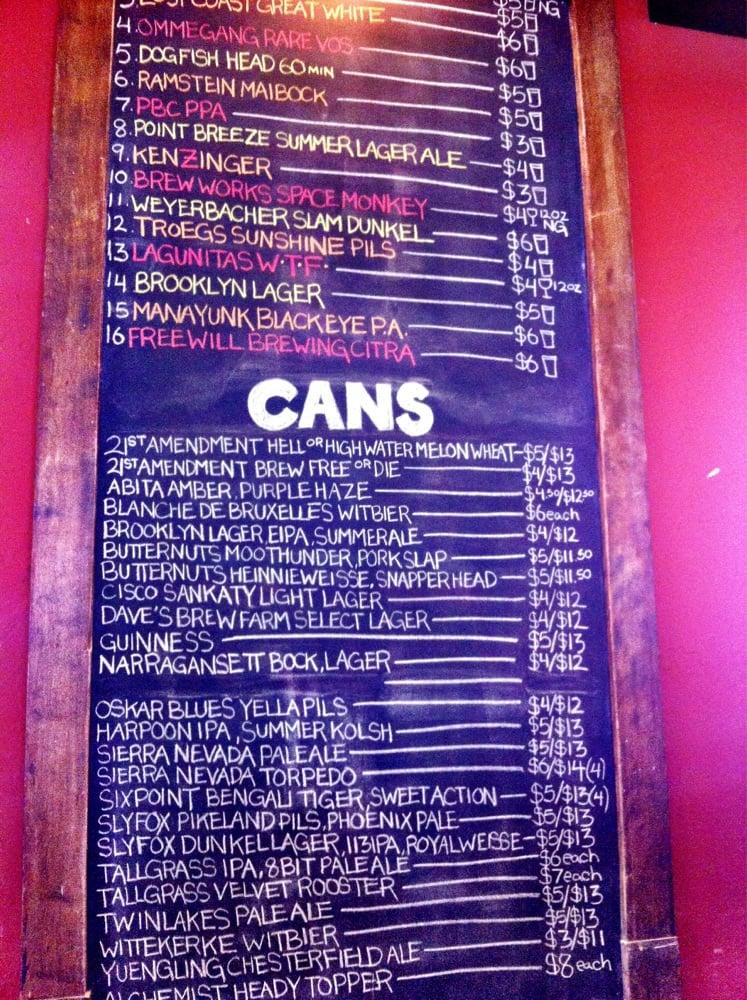 $5 NG
$5
3. LOST COAST GREAT WHITE $6
4. OMMEGANG RARE VOS $6
5. DOGFISH HEAD 60 MIN $5
6. RAMSTEIN MAIBOCK $5
7. PBC PPA $3
8. POINT BREEZE SUMMER LAGER ALE $4
9. KENZINGER $3
10. BREW WORKS SPACE MONKEY $4 12OZ NG
11. WEYERBACHER SLAM DUNKEL $6
12. TROEGS SUNSHINE PILS $4
13 LAGUNITAS W.T.F. $4 12OZ
14 BROOKLYN LAGER $5
15 MANAYUNK BLACK EYE P.A. $6
16 FREE WILL BREWING CITRA $6
CANS
21ST AMENDMENT HELL OR HIGH WATERMELON WHEAT $5/$13
21ST AMENDMENT BREW FREE OR DIE $4/$13
ABITA AMBER, PURPLE HAZE $4.50/$12.50
BLANCHE DE BRUXELLES WITBIER $6each
BROOKLYN LAGER, EIPA, SUMMERALE $4/$12
BUTTERNUTS MOOTHUNDER, PORKSLAP $5/$11.50
BUTTERNUTS HEINNIEWEISSE, SNAPPERHEAD $5/$11.50
CISCO SANKATY LIGHT LAGER $4/$12
DAVE'S BREW FARM SELECT LAGER $4/$12
GUINNESS $5/$13
NARRAGANSETT BOCK, LAGER $4/$12
OSKAR BLUES YELLA PILS $4/$12
HARPOON IPA, SUMMER KOLSH $5/$13
SIERRA NEVADA PALE ALE $5/$13
SIERRA NEVADA TORPEDO $6/$14(4)
SIXPOINT BENGALI TIGER, SWEET ACTION $5/$13(4)
SLYFOX PIKELAND PILS, PHOENIX PALE $5/$13
SLYFOX DUNKEL LAGER, 113 IPA, ROYAL WEISSE $5/$13
TALLGRASS IPA, 8 BIT PALE ALE $6each
TALLGRASS VELVET ROOSTER $7each
TWINLAKES PALE ALE $5/$13
WITTEKERKE WITBIER $5/$13
YUENGLING CHESTERFIELD ALE $3/$11
ALCHEMIST HEADY TOPPER $8each